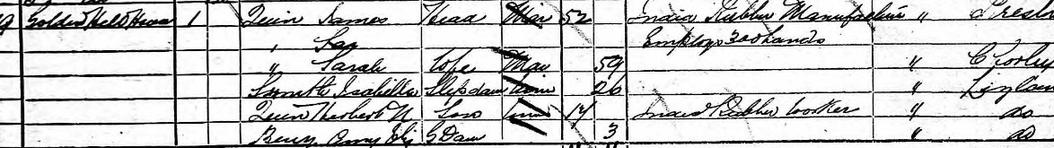 Golden Hill House 1 Quin James Head Mar 52 India Rubber Manufacturer " Presto
Employs 300 hands
" Sarah Wife Mar 59 " Chorley
Smith Isabella Stepdau Unm 26 " Leylan
Quin Herbert W Son Unm 17 India Rubber Worker " do
Berry Amy G Dau 3 " do